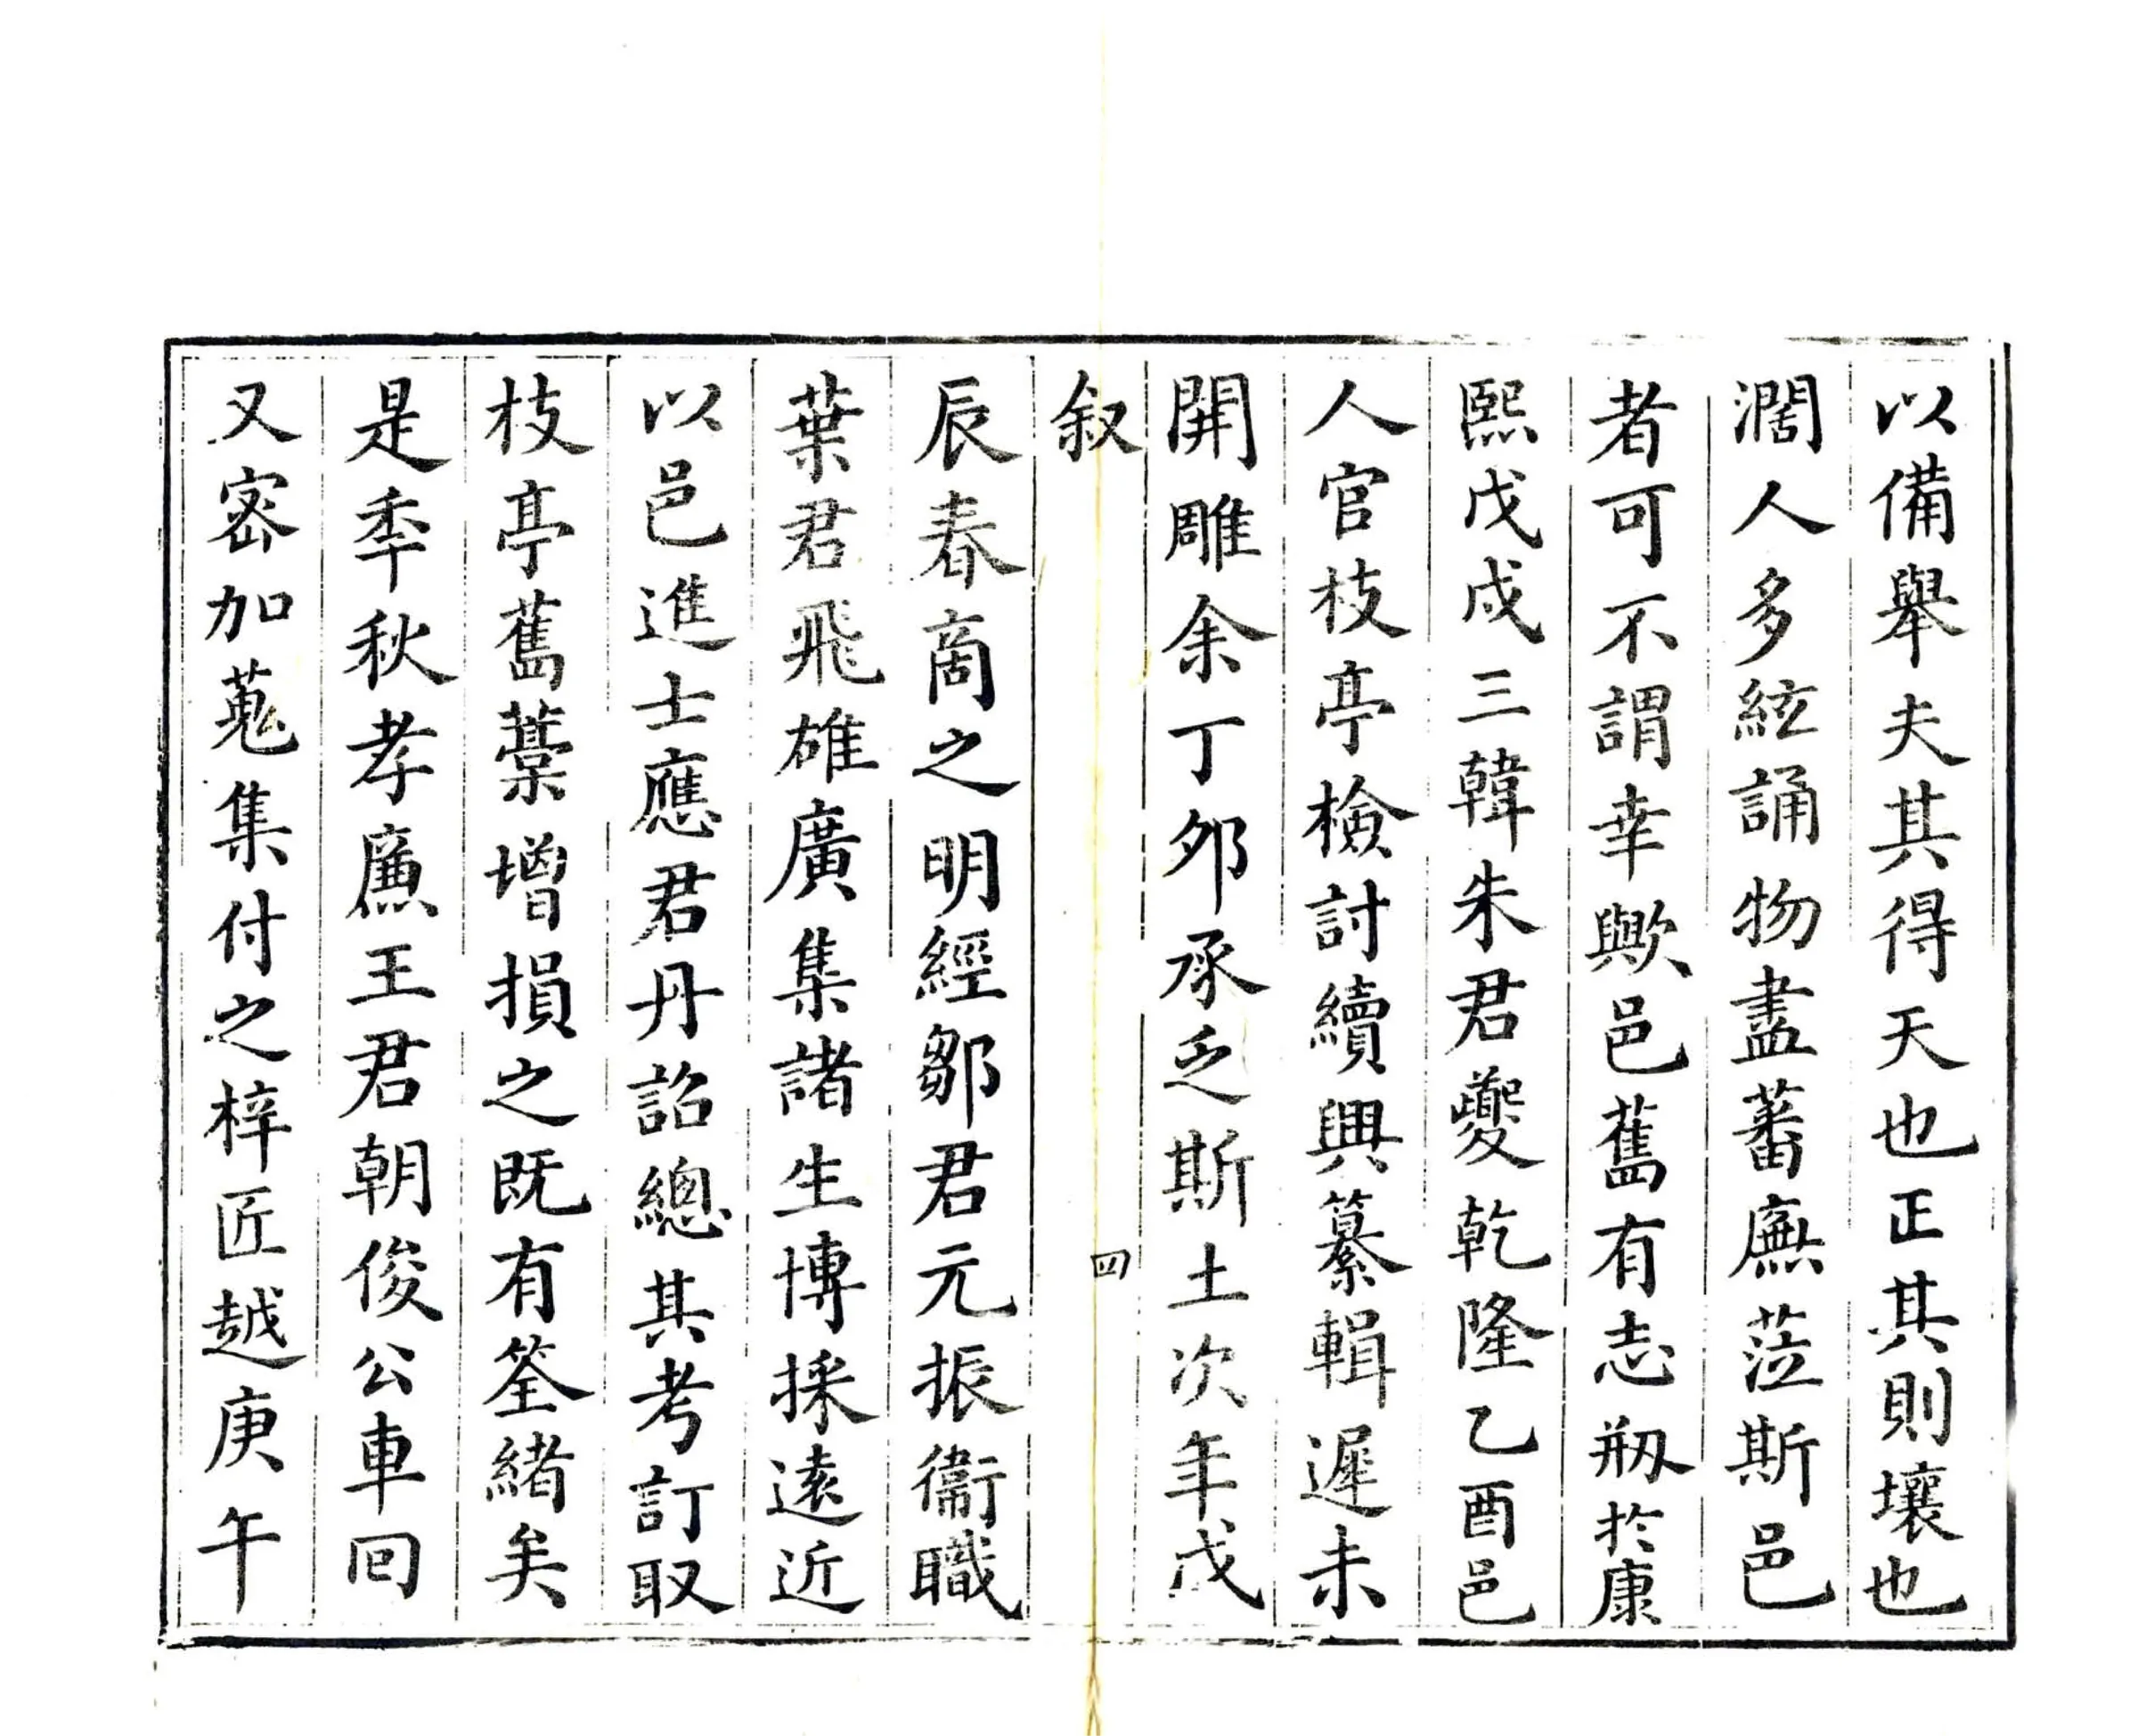 以備舉夫其得天也正其則壤也
濶人多絃誦物盡蕃廡蒞斯邑
者可不謂幸歟邑舊有志剏於康
熙戊戌三韓朱君夔乾隆乙酉邑
人官枝亭檢討續興纂輯遲未
開雕余丁夘承乏斯土次年戊
叙
四
辰春商之明經鄒君元振衞職
葉君飛雄廣集諸生博採遠近
以邑進士應君丹詔總其考訂取
枝亭舊藁增損之既有筌緒矣
是季秋孝廉王君朝俊公車回
又密加蒐集付之梓匠越庚午